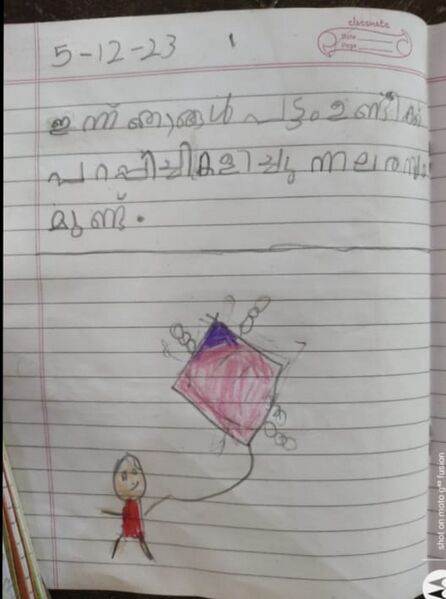 classmate
Date
Page
5-12-23
ഇന്ന് ഞാങ്ങൾ പട്ടം ഉണ്ടാക്കി
പറപ്പിച്ചികളിച്ചു നല്ല രസ
മുണ്ട്.
shot on moto g⁸⁴ fusion